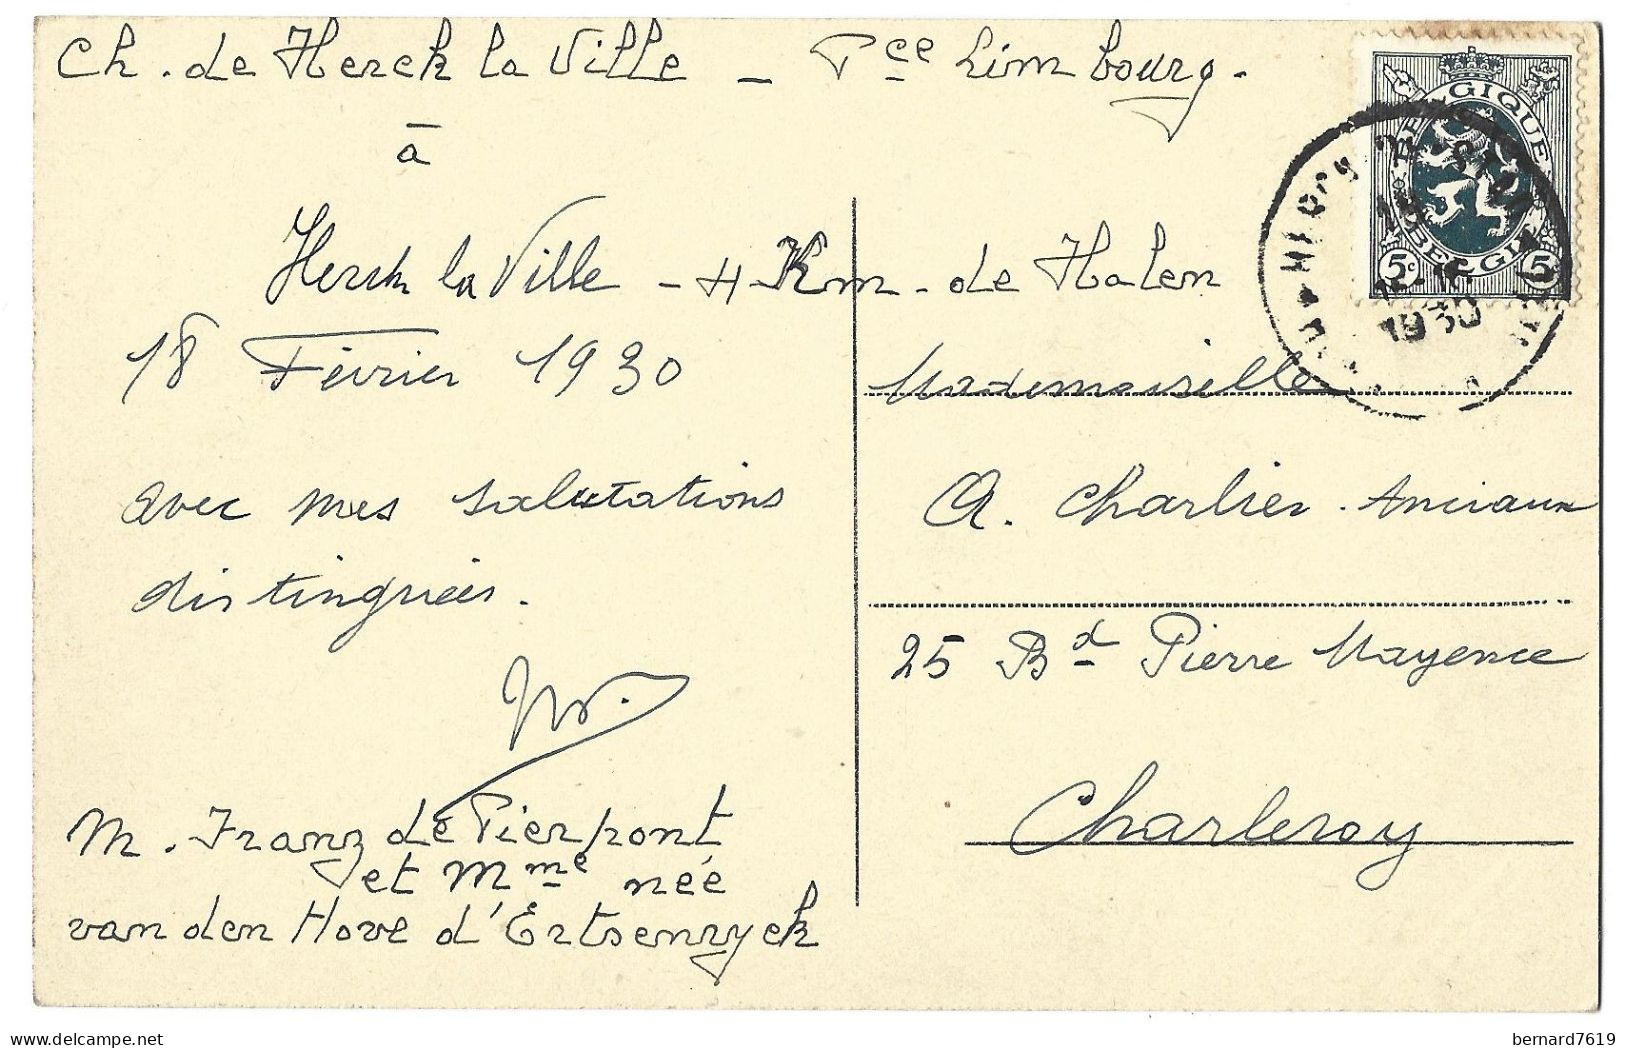 Ch. de Herck la Ville - Pce Limbourg.
à
Herck la Ville - 4 Km. de Halen
18 Février 1930
avec mes salutations
distinguées.
M. Franz de Pierpont
et Mme née
van den Hove d'Ertsenryck
BELGIQUE
BELGIË
5c 5c
1930
Mademoiselle
A. Charlier-Anciaux
25 Bd Pierre Mayence
Charleroy
bernard7619